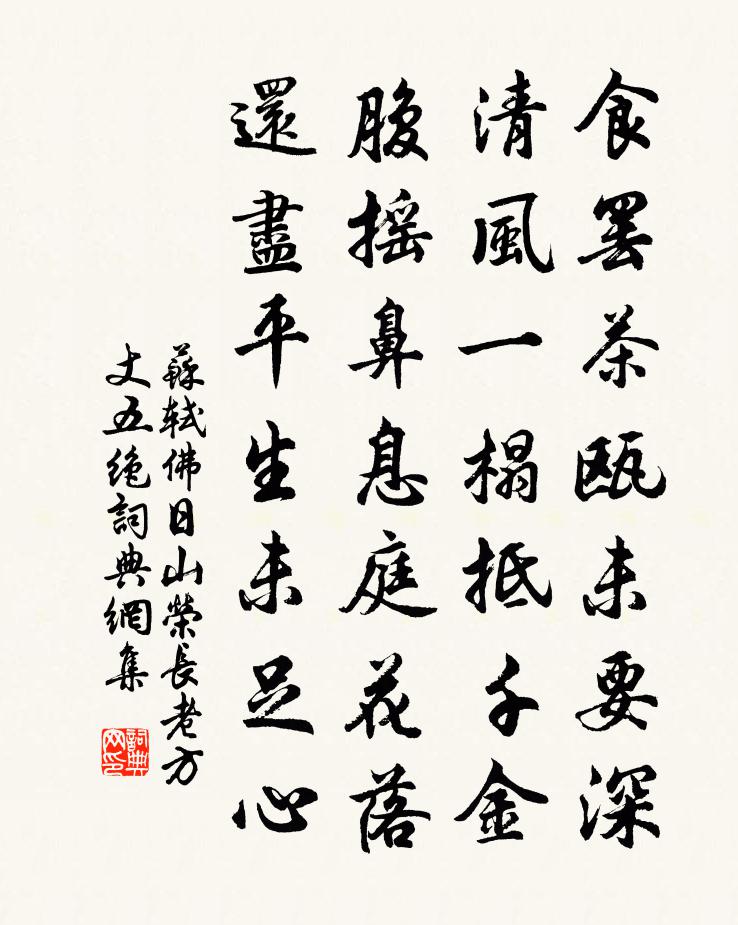 食罢茶瓯未要深
清風一榻抵千金
腹摇鼻息庭花落
還盡平生未足心
蘇軾佛日山榮長老方
丈五绝詞典網集
詞典
网印